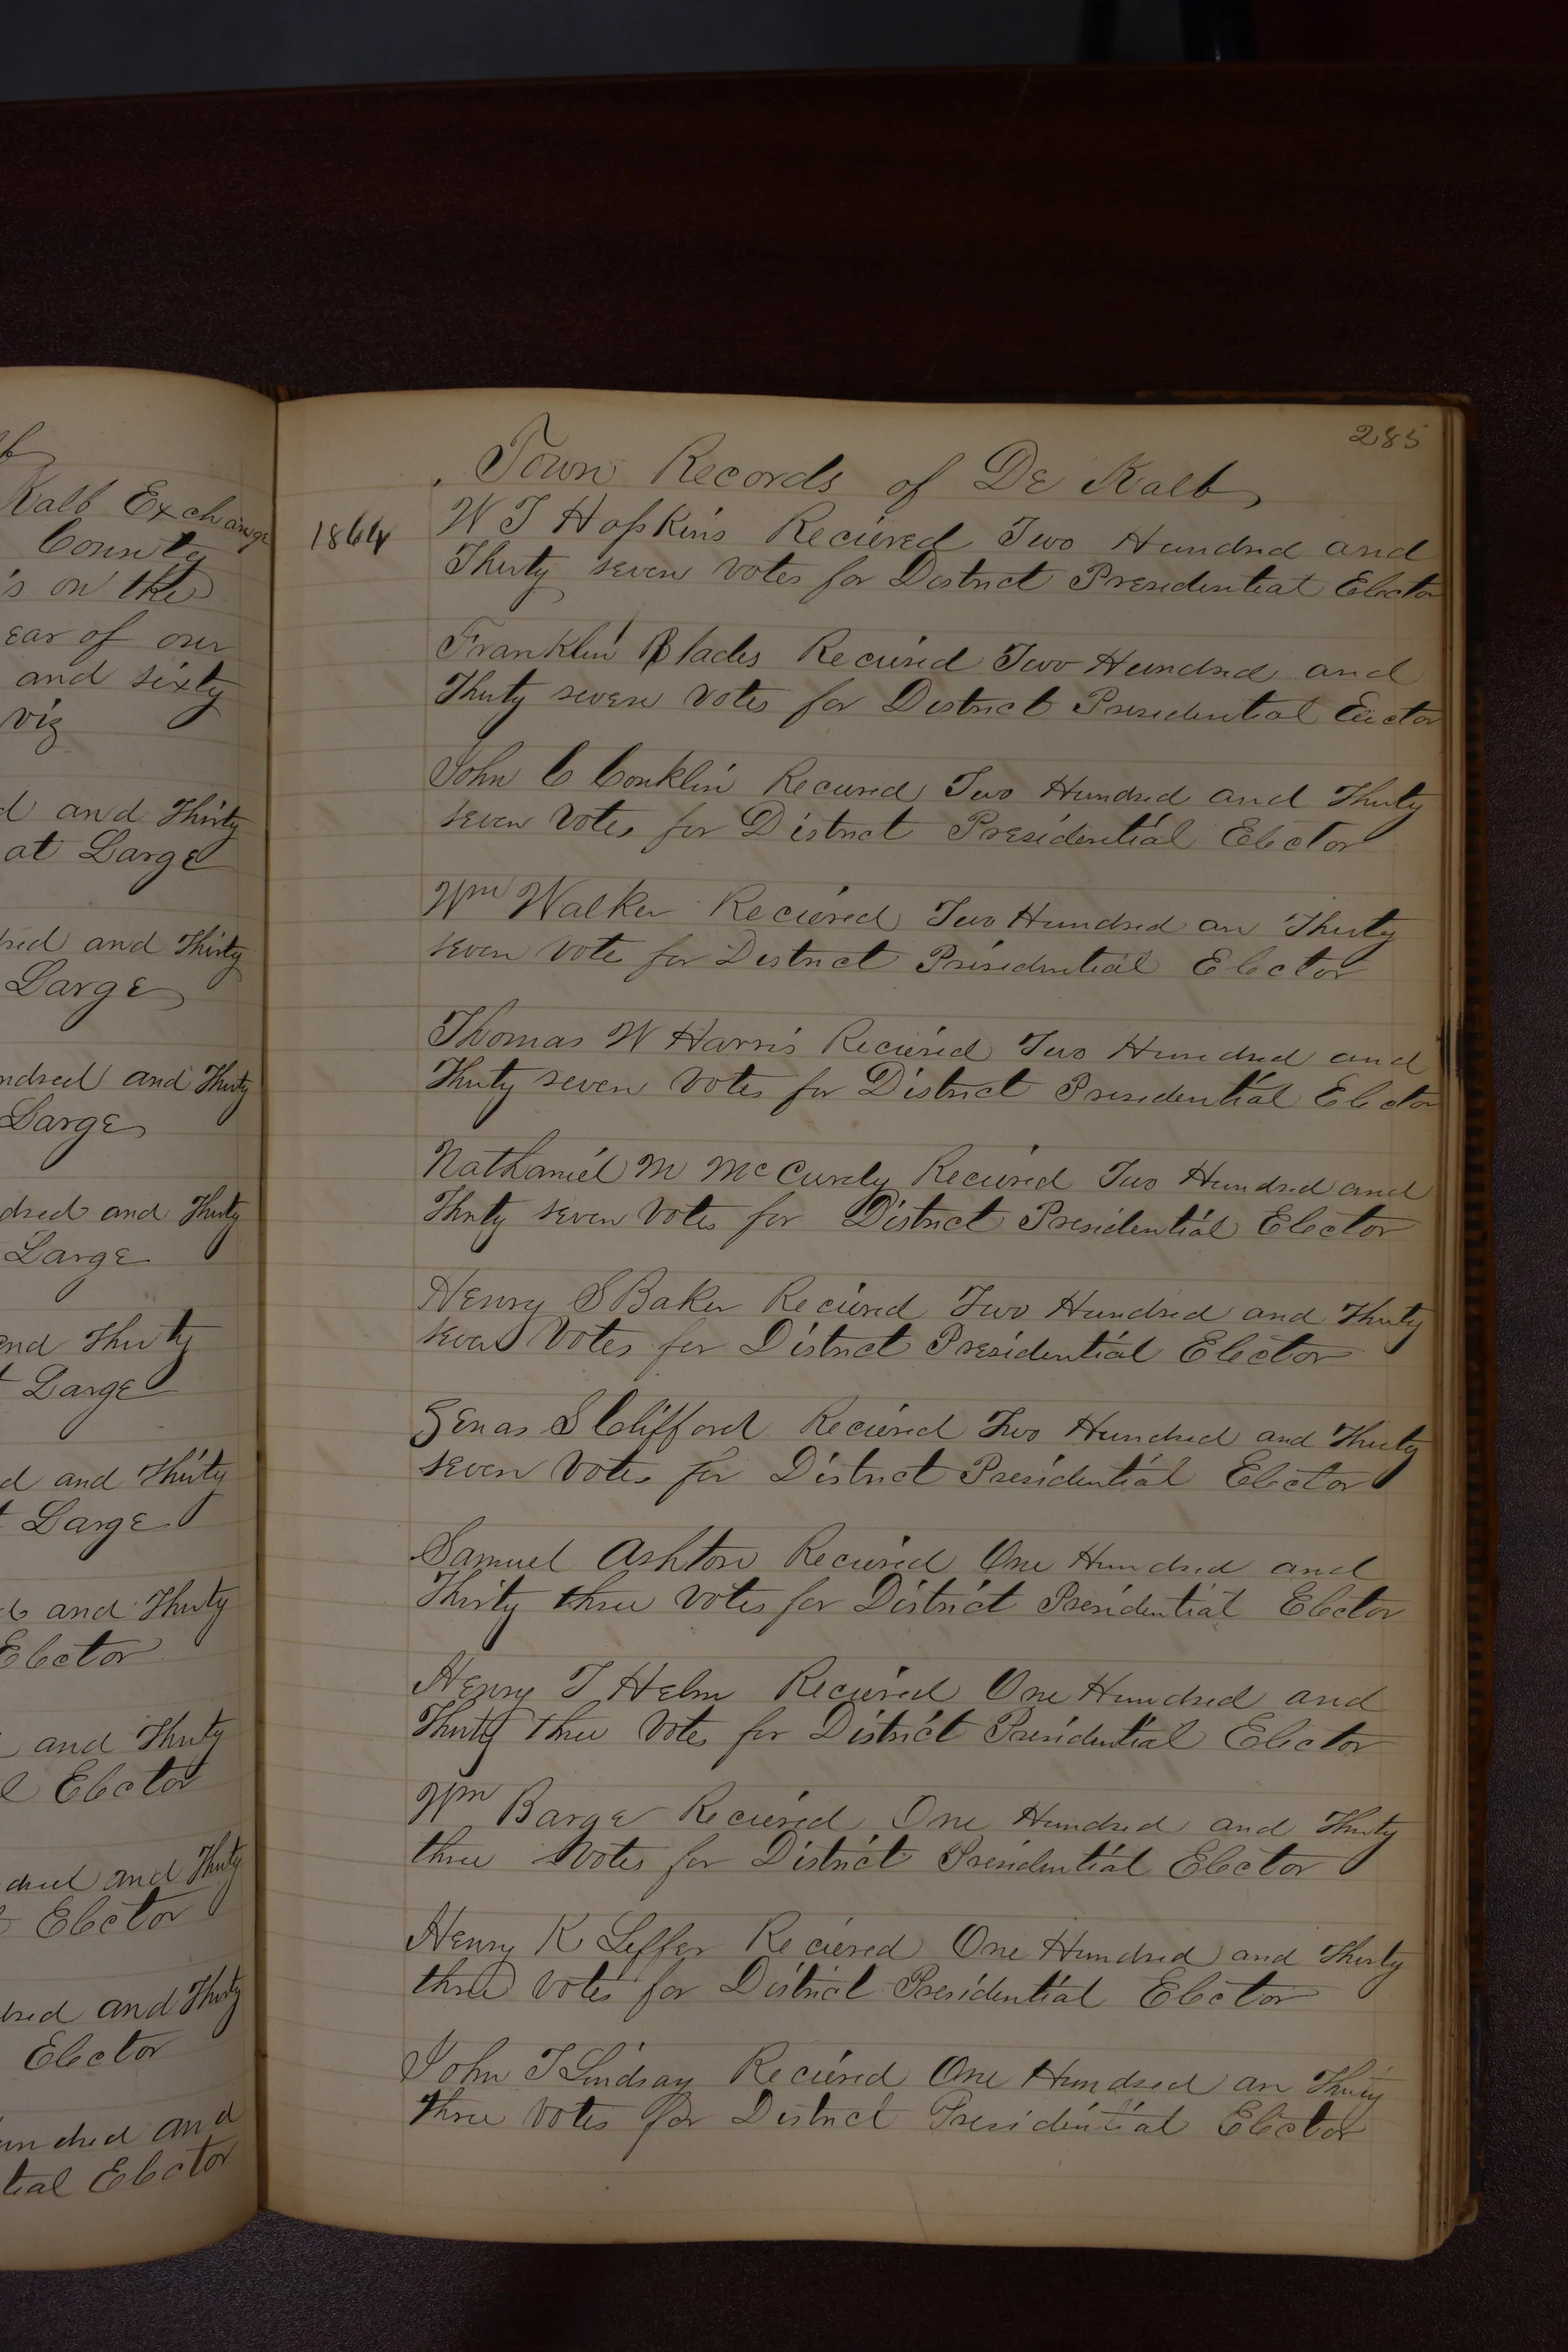 lb
Kalb Exchange
County
's on the
ear of our
and sixty
viz
d and Thirty
at Large
dred and Thirty
Large
ndred and Thirty
Large
dred and Thirty
Large
and Thirty
t Large
d and Thirty
t Large
d and Thirty
Elector
and Thirty
l Elector
dred and Thirty
Elector
dred and Thirty
Elector
undred and
tial Elector
285
Town Records of De Kalb
1864
W T Hopkins Recieved Two Hundred and
Thirty seven votes for District Presidential Elector
Franklin Blades Recieved Two Hundred and
Thirty seven votes for District Presidential Elector
John C Conklin Recieved Two Hundred and Thirty
seven Votes for District Presidential Elector
Wm Walker Recieved Two Hundred an Thirty
seven vote for District Presidential Elector
Thomas W Harris Recieved Two Hundred and
Thirty seven votes for District Presidential Elector
Nathaniel M McCurdy Recieved Two Hundred and
Thirty seven Votes for District Presidential Elector
Henry S Baker Recieved Two Hundred and Thirty
seven Votes for District Presidential Elector
Zenas S Clifford Recieved Two Hundred and Thirty
seven Votes for District Presidential Elector
Samuel Ashton Recieved One Hundred and
Thirty three votes for District Presidential Elector
Henry T Helm Recieved One Hundred and
Thirty three Votes for District Presidential Elector
Wm Barge Recieved One Hundred and Thirty
three Votes for District Presidential Elector
Henry K Leffer Recieved One Hundred and Thirty
three Votes for District Presidential Elector
John T Lindsay Recieved One Hundred an Thirty
three Votes for District Presidential Elector